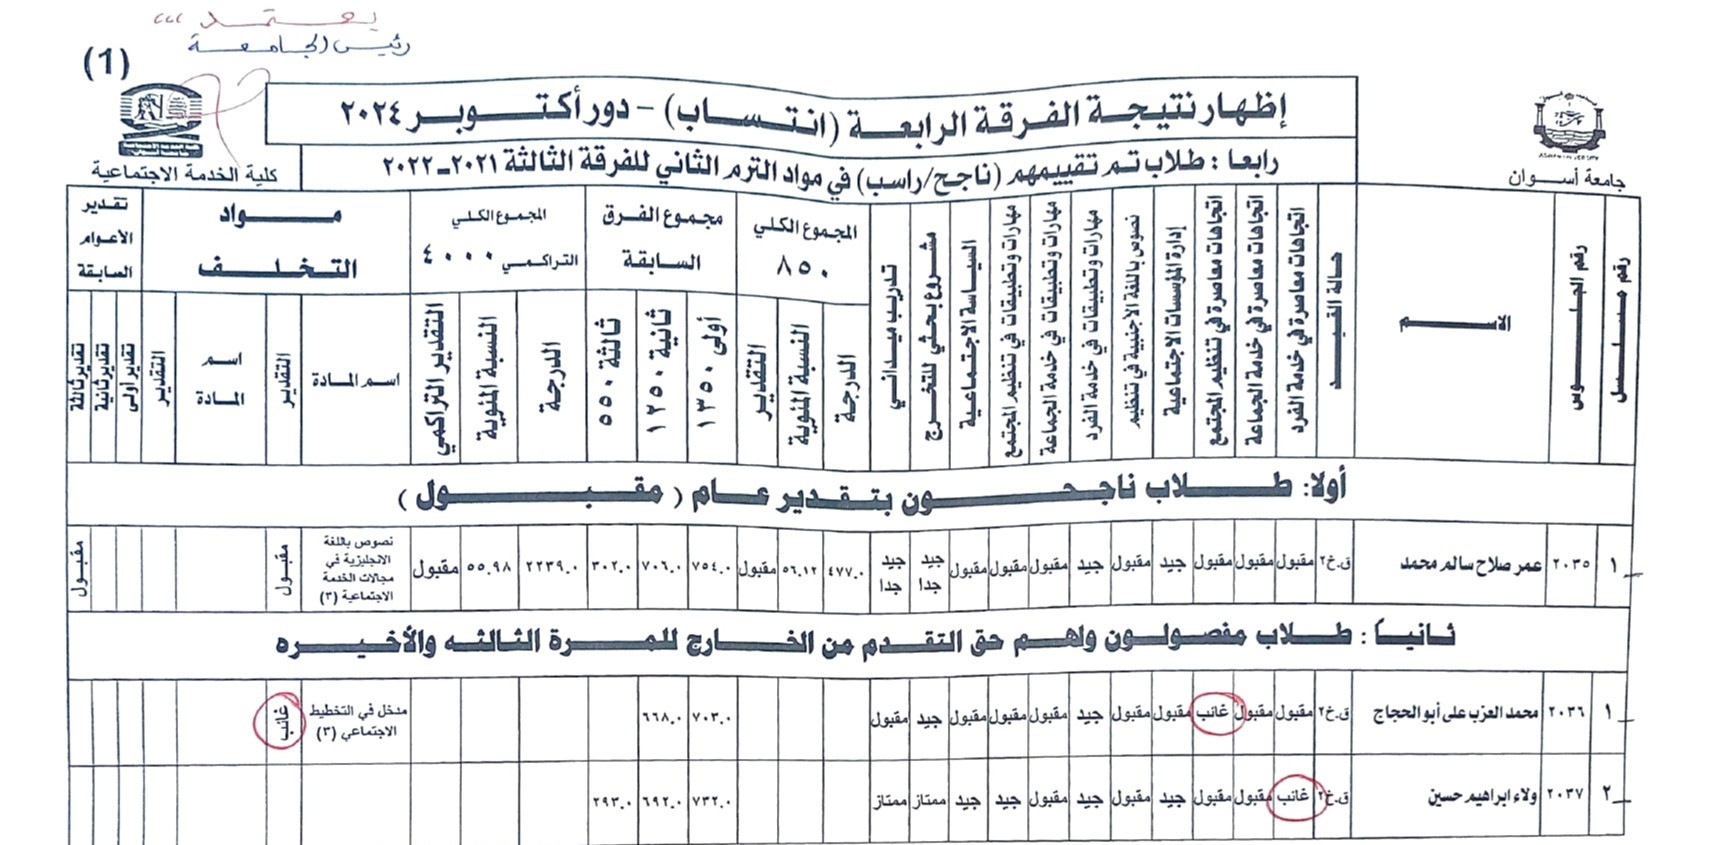 يعتمد ،،،
رئيس الجامعة
(1)
إظهار نتيجة الفرقة الرابعة (انتساب) - دور أكتوبر ٢٠٢٤
رابعا : طلاب تم تقييمهم (ناجح/راسب) في مواد الترم الثاني للفرقة الثالثة ٢٠٢١-٢٠٢٢
جامعة أسوان
كلية الخدمة الاجتماعية
رقم مسلسل
رقم الجلوس
الاسم
حالة القيد
اتجاهات معاصرة في خدمة الفرد
اتجاهات معاصرة في خدمة الجماعة
اتجاهات معاصرة في تنظيم المجتمع
إدارة المؤسسات الاجتماعية
نصوص باللغة الأجنبية في تنظيم
مهارات وتطبيقات في خدمة الفرد
مهارات وتطبيقات في خدمة الجماعة
مهارات وتطبيقات في تنظيم المجتمع
السياسة الاجتماعية
مشروع بحثي للتخرج
تدريب ميداني
المجموع الكلي ٨٥٠
الدرجة
النسبة المئوية
التقدير
مجموع الفرق السابقة
أولى ١٣٥٠
ثانية ١٢٥٠
ثالثة ٥٥٠
المجموع الكلي التراكمي ٤٠٠٠
الدرجة
النسبة المئوية
التقدير التراكمي
مواد التخلف
اسم المادة
التقدير
اسم المادة
التقدير
تقدير الأعوام السابقة
تقدير أولى
تقدير ثانية
تقدير ثالثة
أولا: طلاب ناجحون بتقدير عام ( مقبول )
١ ٢٠٣٥ عمر صلاح سالم محمد ق.خ٢ مقبول مقبول مقبول جيد مقبول جيد مقبول مقبول مقبول جيد جدا جيد جدا ٤٧٧.٠ ٥٦.١٢ مقبول ٧٥٤.٠ ٧٠٦.٠ ٣٠٢.٠ ٢٢٣٩.٠ ٥٥.٩٨ مقبول نصوص باللغة الانجليزية في مجالات الخدمة الاجتماعية (٣) مقبول مقبول
ثانياً : طلاب مفصولون ولهم حق التقدم من الخارج للمرة الثالثه والأخيره
١ ٢٠٣٦ محمد العزب على أبو الحجاج ق.خ٢ مقبول مقبول غائب مقبول مقبول جيد مقبول مقبول مقبول جيد مقبول ٧٠٣.٠ ٦٦٨.٠ مدخل في التخطيط الاجتماعي (٣) غائب
٢ ٢٠٣٧ ولاء ابراهيم حسين ق.خ٢ غائب مقبول مقبول جيد مقبول جيد مقبول جيد جيد ممتاز ممتاز ٧٣٢.٠ ٦٩٢.٠ ٢٩٣.٠